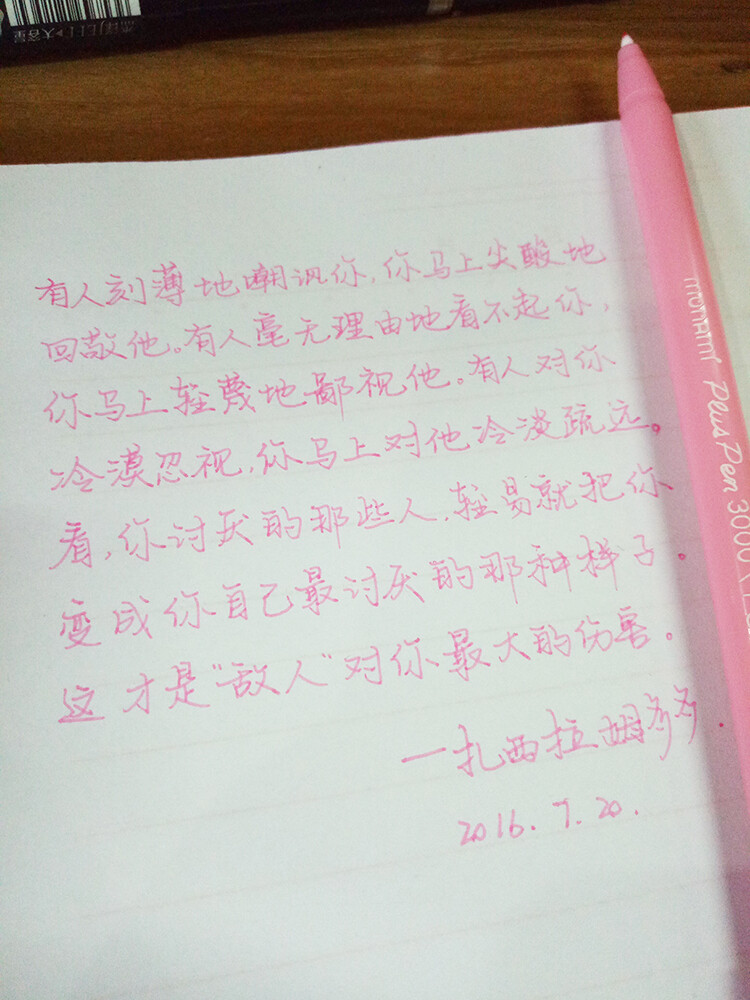 大容量
有人刻薄地嘲讽你,你马上尖酸地
回敬他。有人毫无理由地看不起你,
你马上轻蔑地鄙视他。有人对你
冷漠忽视,你马上对他冷淡疏远。
看,你讨厌的那些人,轻易就把你
变成你自己最讨厌的那种样子。
这才是"敌人"对你最大的伤害。
一扎西拉姆多多.
2016.7.20.
monami Plus Pen 3000